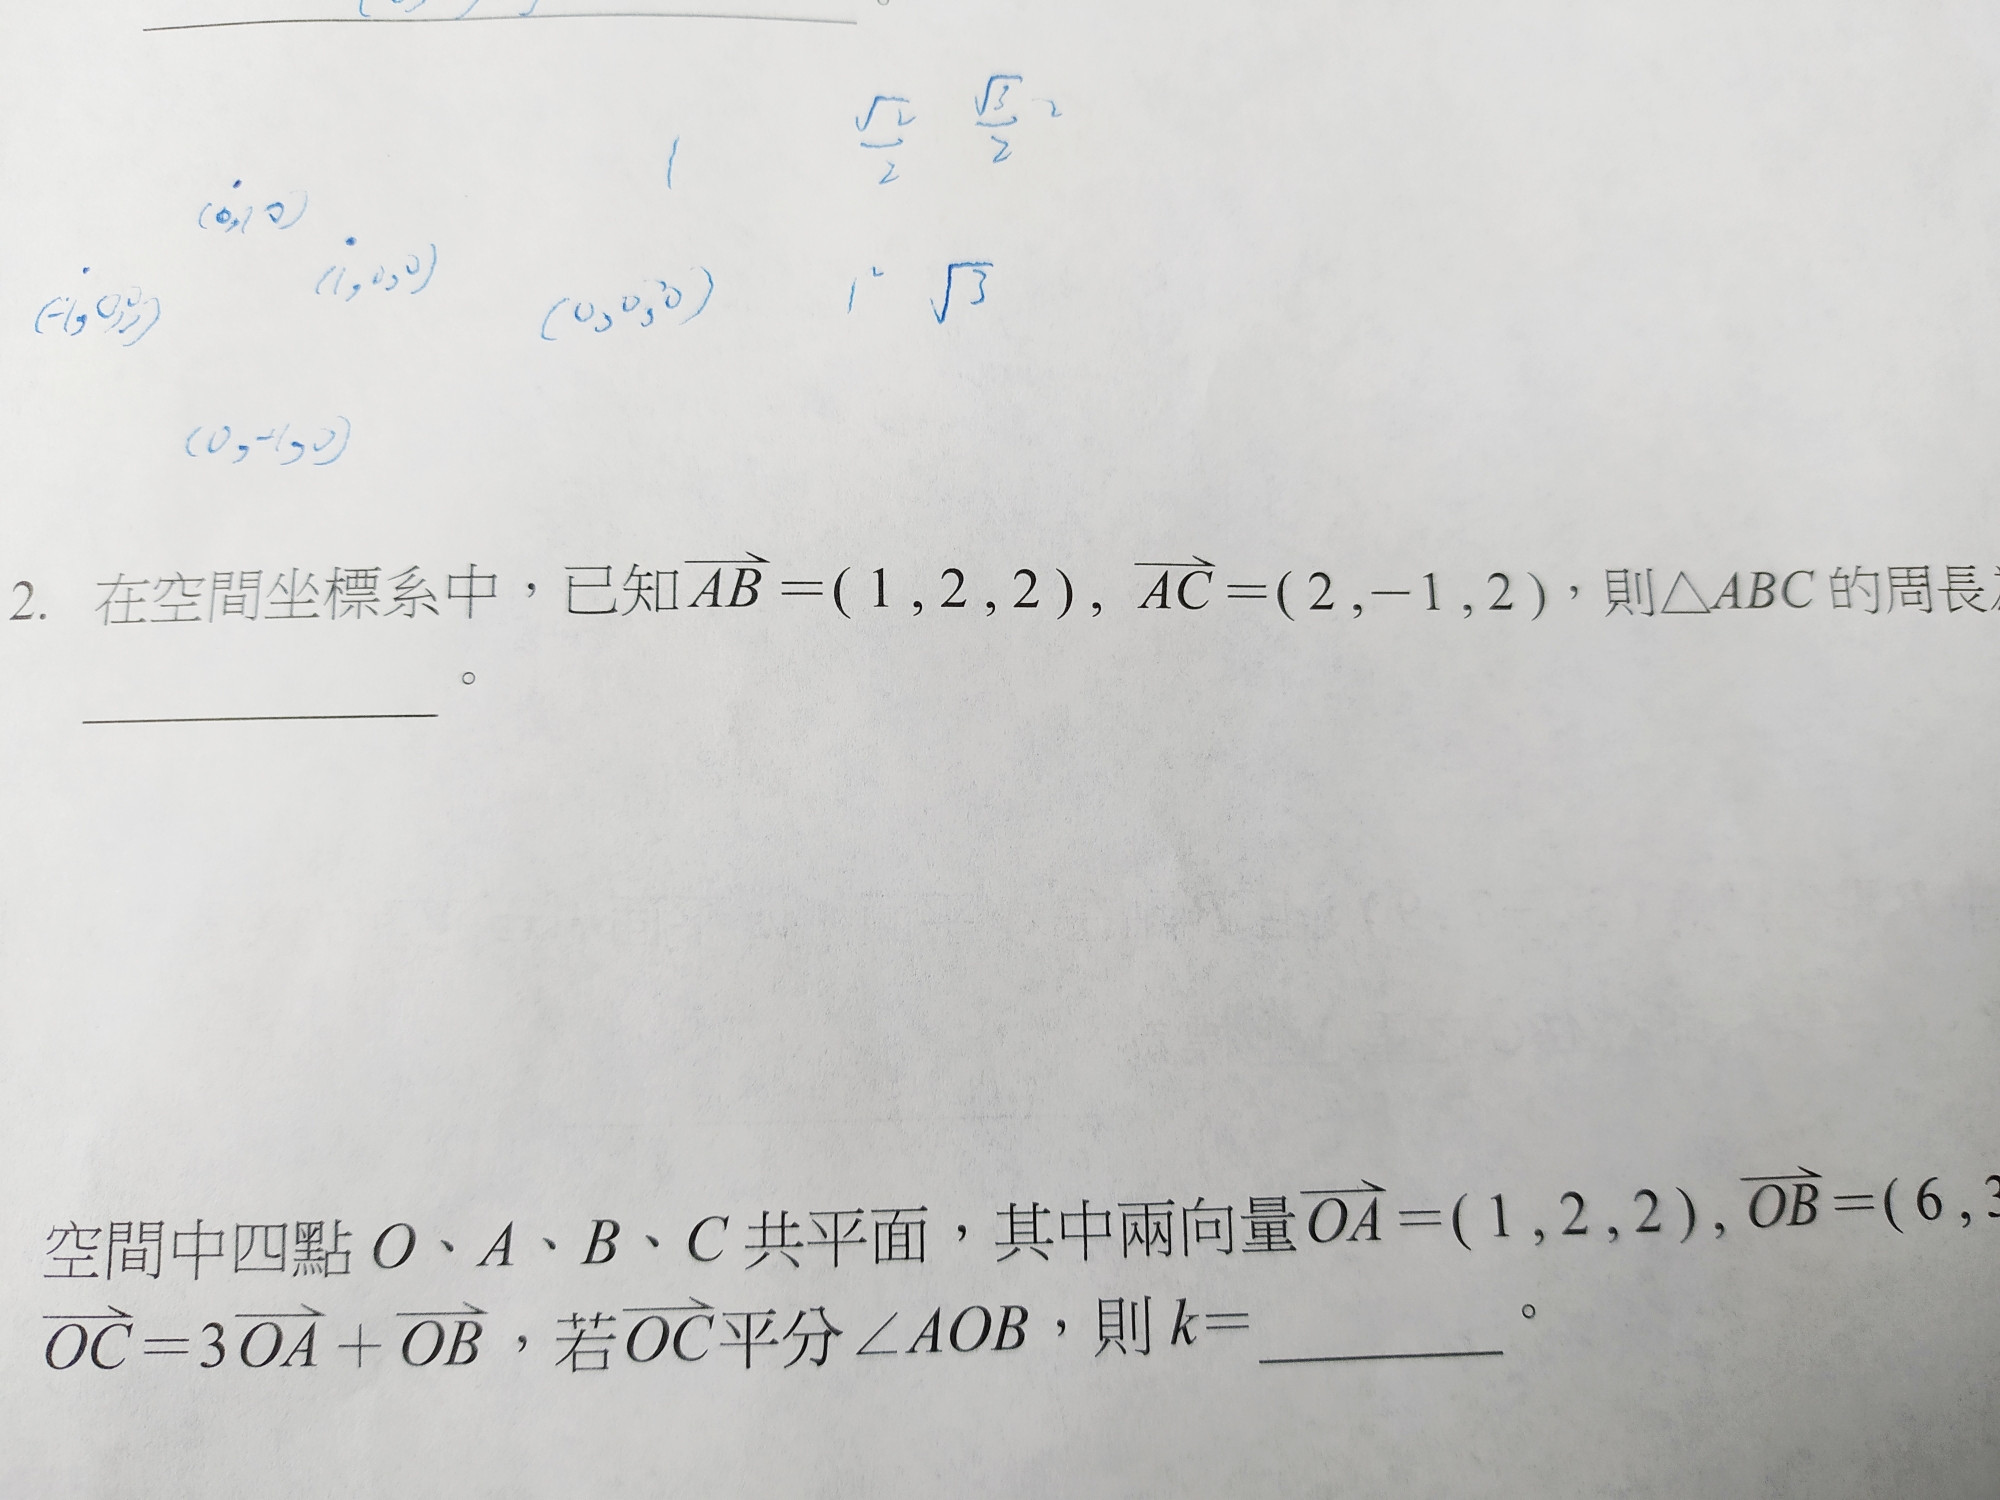 1
√2/2 √3/2 2
(1,0,0)
(0,0,0) 1 √3
(0,-1,0)
2. 在空間坐標系中，已知AB=(1,2,2), AC=(2,-1,2)，則△ABC的周長
。
空間中四點O、A、B、C共平面，其中兩向量OA=(1,2,2), OB=(6,3
OC=3OA+OB，若OC平分∠AOB，則k= 。